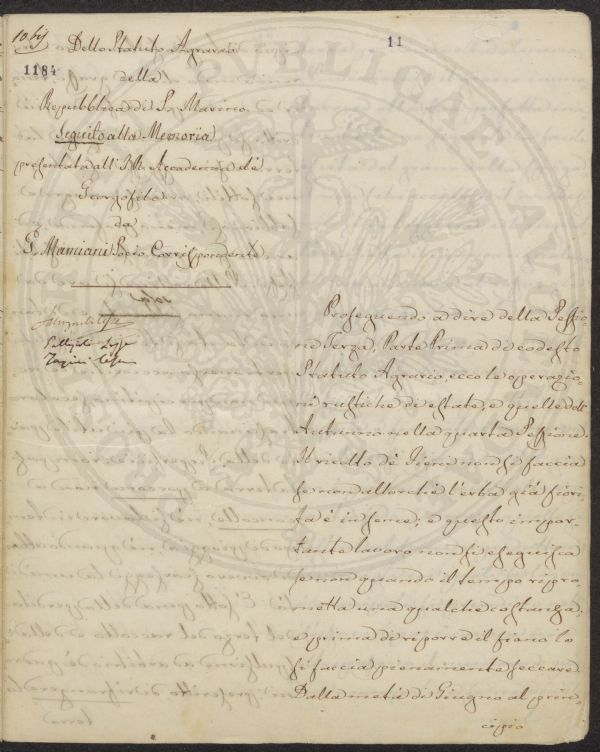 11
1184
Dello Statuto Agrario
della
Repubblica di S. Marino
Seguito alla Memoria
presentata all'I. R. Accademia de'
Georgofili
da
G. Mamiani Socio Corrispondente
Proseguendo a dire della Sessio-
ne Terza, Parte Prima di codesto
Statuto Agrario, ecco le operazio-
ni rustiche di estate, e quelle dell'
Autunno nella quarta Sessione.
Il ricolto de' Fieni non si faccia
se non allorchè l'erba già fiori-
ta è in seme; e questo impor-
tante lavoro non si eseguisca
se non quando il tempo ripro-
metta una qualche costanza;
e prima di riporre il fieno lo
si faccia pienamente seccare.
Dalla metà di Giugno al prin-
cipio